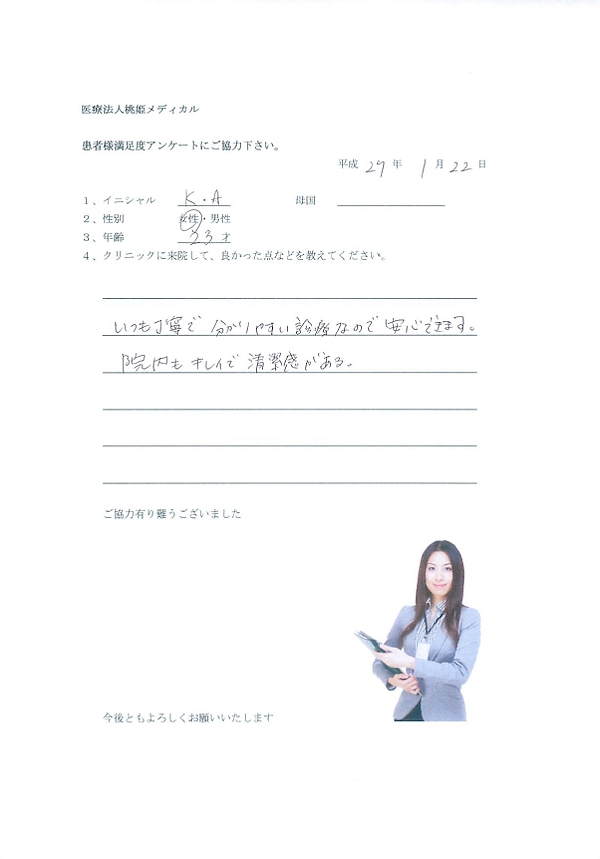 医療法人桃姫メディカル
患者様満足度アンケートにご協力下さい。
平成 29 年 1 月 22 日
1、イニシャル K・A 母国
2、性別 女性・男性
3、年齢 23才
4、クリニックに来院して、良かった点などを教えてください。
いつも丁寧で 分かりやすい診療なので 安心できます。
院内も キレイで 清潔感がある。
ご協力有り難うございました
今後ともよろしくお願いいたします